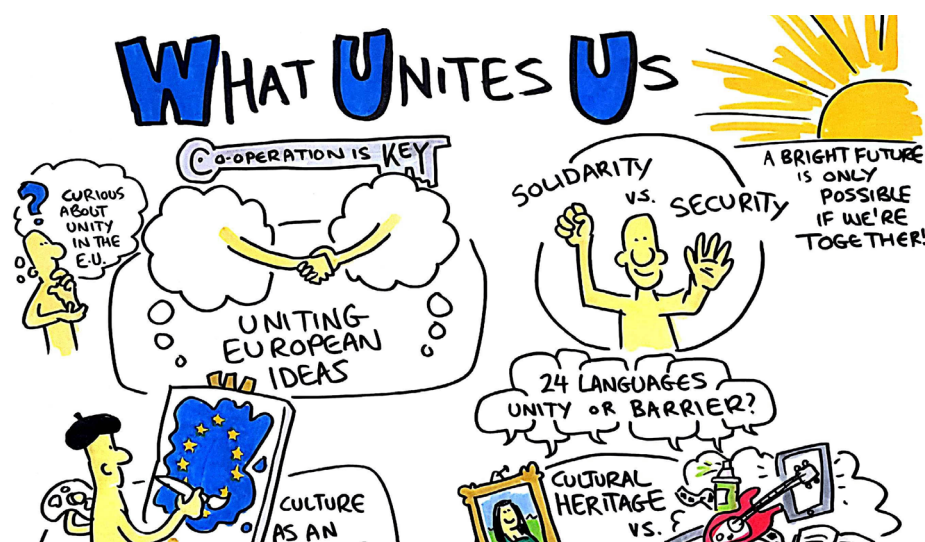 WHAT UNITES US
CO-OPERATION IS KEY
?
CURIOUS
ABOUT
UNITY
IN THE
E.U.
UNITING
EUROPEAN
IDEAS
SOLIDARITY
VS.
SECURITY
A BRIGHT FUTURE
IS ONLY
POSSIBLE
IF WE'RE
TOGETHER!
24 LANGUAGES
UNITY OR BARRIER?
CULTURE
AS AN
CULTURAL
HERITAGE
VS.